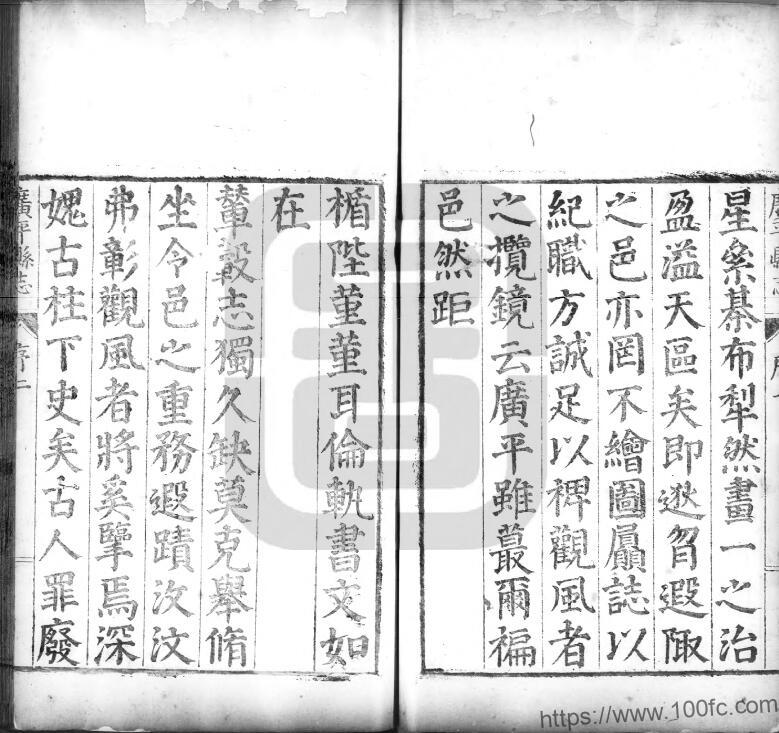 星絫棊布犁然畫一之治
盈溢天區矣即逖胷遐陬
之邑亦罔不繪圖屭誌以
紀職方誠足以稗觀風者
之攬鏡云廣平雖蕞爾褊
邑然距
楯陛董董耳倫軌書文如
在
輦轂志獨久缺莫克舉脩
坐令邑之重務遐蹟汶汶
弗彰觀風者將奚擥焉深
媿古柱下史矣古人罪廢
廣平縣志
序二
https://www.100fc.com